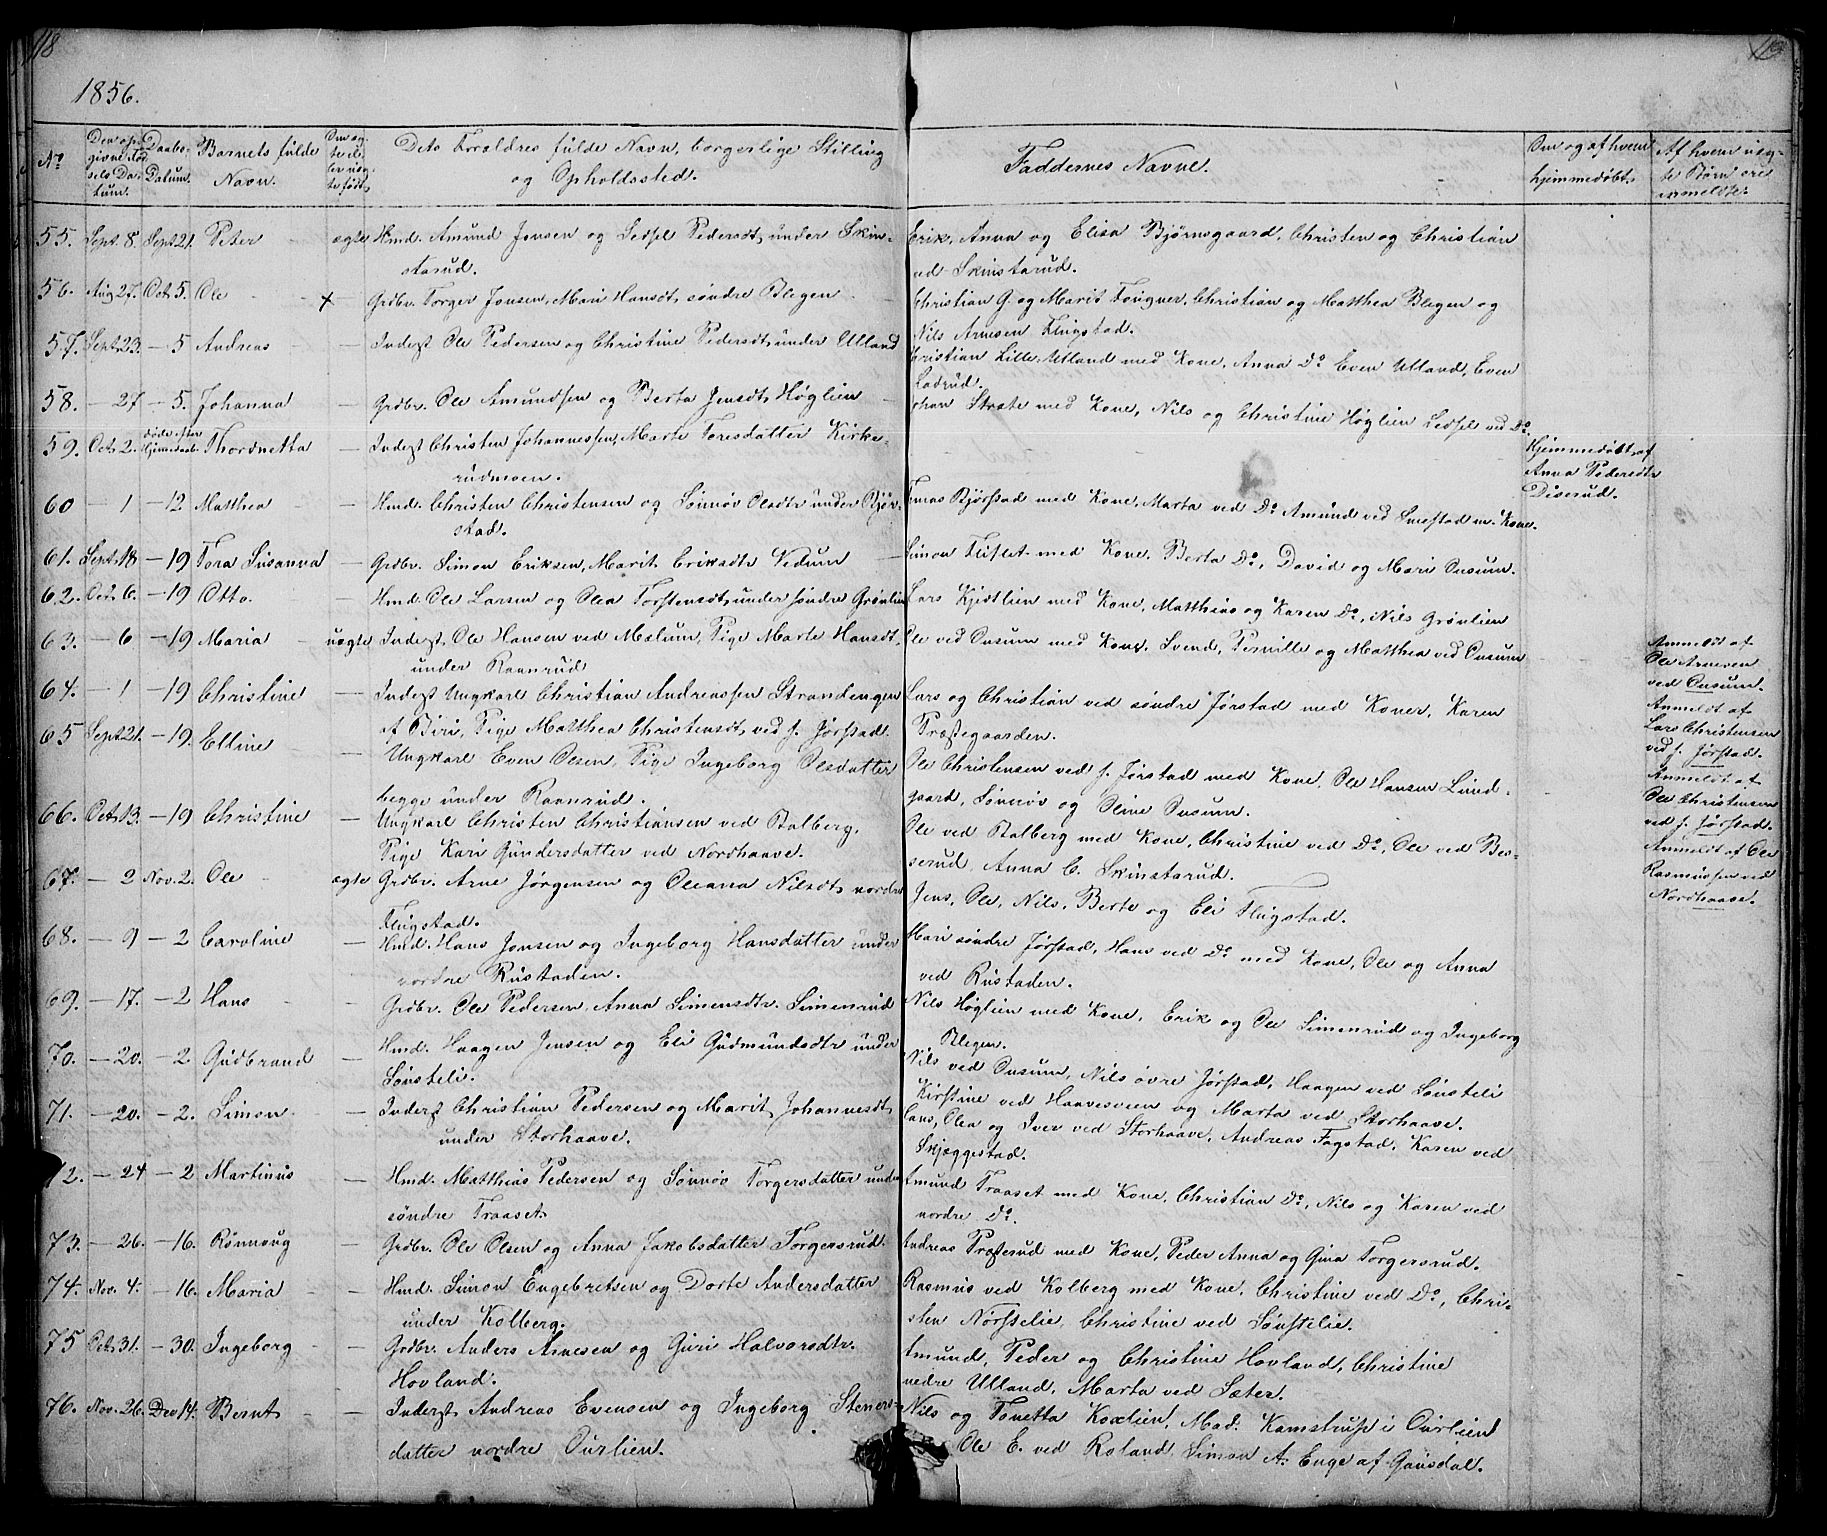 118
119
1856.
No
Den opgivne Fødsels Datum.
Daabs-Datum.
Barnets fulde Navn.
Om ægte el. ler uægte født
Dets Forældres fulde Navn, borgerlige Stilling og Opholdssted.
Faddernes Navne.
Om og af hvem hjemmedøbt.
Af hvem uægte Børn ere anmeldte.
55. Sept. 8. Sept 21. Peter ægte Hmd. Amund Jensen og Sedsel Pedersdt. under Skin-
starud.
Erik, Anna og Elisa Bjørnsgaard, Christen og Christian
ved Skinstarud.
56. Aug 27. Oct 5. Ole x Grdbr. Torger Jonsen, Mari Hansdt. søndre Blegen
Christian G. og Marit Fougner, Christian og Matthea Blegen og
Nils Arnesen Flugstad.
57. Sept 23. - 5 Andreas — Inderst Ole Pedersen og Christine Pedersdt. under Ulland
Christian Lille Utland med Kone, Anna Do Even Utland, Even
Ladrud.
58. - 27 - 5. Johanna — Grdbr. Ole Amundsen og Berta Jensdt. Høglien
Johan Stræte med Kone, Nils og Christine Høglien Sedsel ved Do.
59. Oct 2. døde efter Hjemmedaab. Thordnetta — Inderst Christen Johannessen, Marte Toresdatter Kirke-
rudmoen.
Hjemmedøbt af
Anna Pedersdtr
Diserud.
60 - 1 - 12 Matthea — Hmd. Christen Christensen og Sønnøv Olsdtr under Bjør-
stad.
Tomas Bjørstad med Kone, Marta ved Do Amund ved Smestad m. Kone.
61. Sept. 18 - 19 Tora Susanna — Grdbr. Simon Eriksen, Marit Eriksdtr Vedum
Simon Fliflet med Kone, Berta Do, David og Mari Onsum.
62. Oct 6. - 19 Otto. — Hmd. Ole Larsen og Olea Torstensdt. under søndre Grønlien
Lars Kjøtlien med Kone, Matthias og Karen Do, Nils Grønlien
63. - 6 - 19 Maria uægte Inderst Ole Hansen ved Mælum, Pige Marte Hansdt.
under Raanrud
Ole ved Onsum med Kone, Svend, Pernille og Matthea ved Onsum
Anmeldt af
Ole Arnesen
ved Onsum.
64. - 1 - 19 Christine — Inderst Ungkarl Christian Andreassen Strandengen
af Biri, Pige Matthea Christensdt. ved s. Jørstad.
Lars og Christian ved søndre Jørstad med Koner, Karen
Præstegaarden.
Anmeldt af
Lars Christensen
ved s. Jørstad.
65 Sept 21. - 19. Elline — Ungkarl Even Olsen, Pige Ingeborg Olsdatter
begge under Raanrud.
Ole Christensen ved s. Jørstad med Kone, Ole Hansen Lund-
gaard, Sønnøv og Oline Onsum.
Anmeldt af
Ole Christensen
ved s. Jørstad.
66. Oct 13. - 19 Christine — Ungkarl Christen Christiansen ved Balberg.
Pige Kari Gundersdatter ved Nordhaave.
Ole ved Balberg med Kone, Christine ved Do, Ole ved Bes-
serud, Anna C. Skinstarud.
Anmeldt af Ole
Rasmussen ved
Nordhaave.
67. - 2 Nov. 2. Ole ægte Grdbr. Arne Jørgensen og Oleana Nilsdt. nordre
Flugstad.
Jens, Ole, Nils, Berte og Eli Flugstad.
68. - 9 - 2 Caroline — Hmd. Hans Jensen og Ingeborg Hansdatter under
nordre Rustaden.
Mari søndre Jørstad, Hans ved Do med Kone, Ole og Anna
ved Rustaden.
69. - 17. - 2 Hans — Grdbr. Ole Pedersen, Anna Simensdtr. Simenrud
Nils Høglien med Kone, Erik og Ole Simenrud og Ingeborg
Blegen.
70. - 20. - 2 Gudbrand — Hmd. Haagen Jensen og Eli Gudmundsdtr under
Sønsteli.
Nils ved Onsum, Nils øvre Jørstad, Haagen ved Sønsteli
Kirstine ved Haavesveen og Marta ved Storhaave.
71. - 20. - 2. Simon — Inderst Christian Pedersen og Marit Johannesdt.
under Storhaave.
Hans, Olea og Iver ved Storhaave, Andreas Fagstad, Karen ved
Skjæggestad.
72. - 24 - 2 Martinus — Hmd. Matthias Pedersen og Sønnøv Torgersdatter under
søndre Traaset
Amund Traaset med Kone, Christian Do, Nils og Karen ved
nordre Do.
73. - 26. - 16. Rønnoug — Grdbr. Ole Olsen og Anna Jakobsdatter Torgersrud.
Andreas Præsterud med Kone, Peder Anna og Gina Torgersrud.
74. Nov. 4. - 16. Maria — Hmd. Simon Engebretsen og Dorte Andersdatter
under Kolberg.
Rasmus ved Kolberg med Kone, Christine ved Do, Chri-
sten Nørstelie, Christine ved Sønstelie.
75 Oct 31. - 30. Ingeborg — Grdbr. Anders Arnesen og Guri Halvorsdtr.
Hovland.
Amund, Peder og Christine Hovland, Christine
nedre Ulland, Marta ved Sæter.
76. Nov. 26. Dec 14. Bernt — Inderst Andreas Evensen og Ingeborg Steners-
datter nordre Ourlien.
Nils og Tonetta Koxlien, Mad. Kamstrup i Ourlien
Ole E. ved Roland, Simon A. Enge af Gausdal.